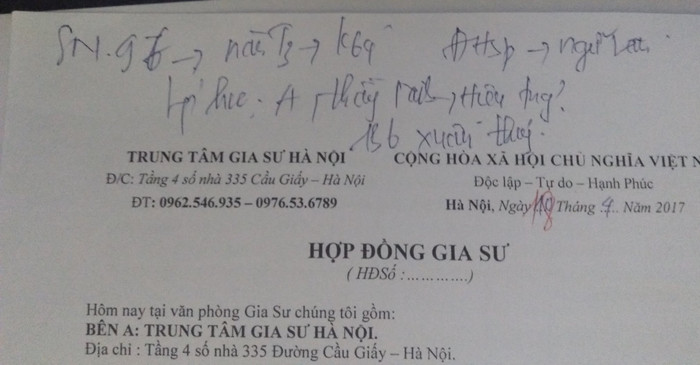 SN. → năm T3 → K69 ĐHSP →
A, thầy
156 xuân thuỷ.
TRUNG TÂM GIA SƯ HÀ NỘI CỘNG HÒA XÃ HỘI CHỦ NGHĨA VIỆT N
Đ/C: Tầng 4 số nhà 335 Cầu Giấy – Hà Nội Độc lập – Tự do – Hạnh Phúc
ĐT: 0962.546.935 – 0976.53.6789 Hà Nội, Ngày Tháng .9.. Năm 2017
HỢP ĐỒNG GIA SƯ
( HĐSố :………….)
Hôm nay tại văn phòng Gia Sư chúng tôi gồm:
BÊN A: TRUNG TÂM GIA SƯ HÀ NỘI.
Địa chỉ : Tầng 4 số nhà 335 Đường Cầu Giấy – Hà Nội.